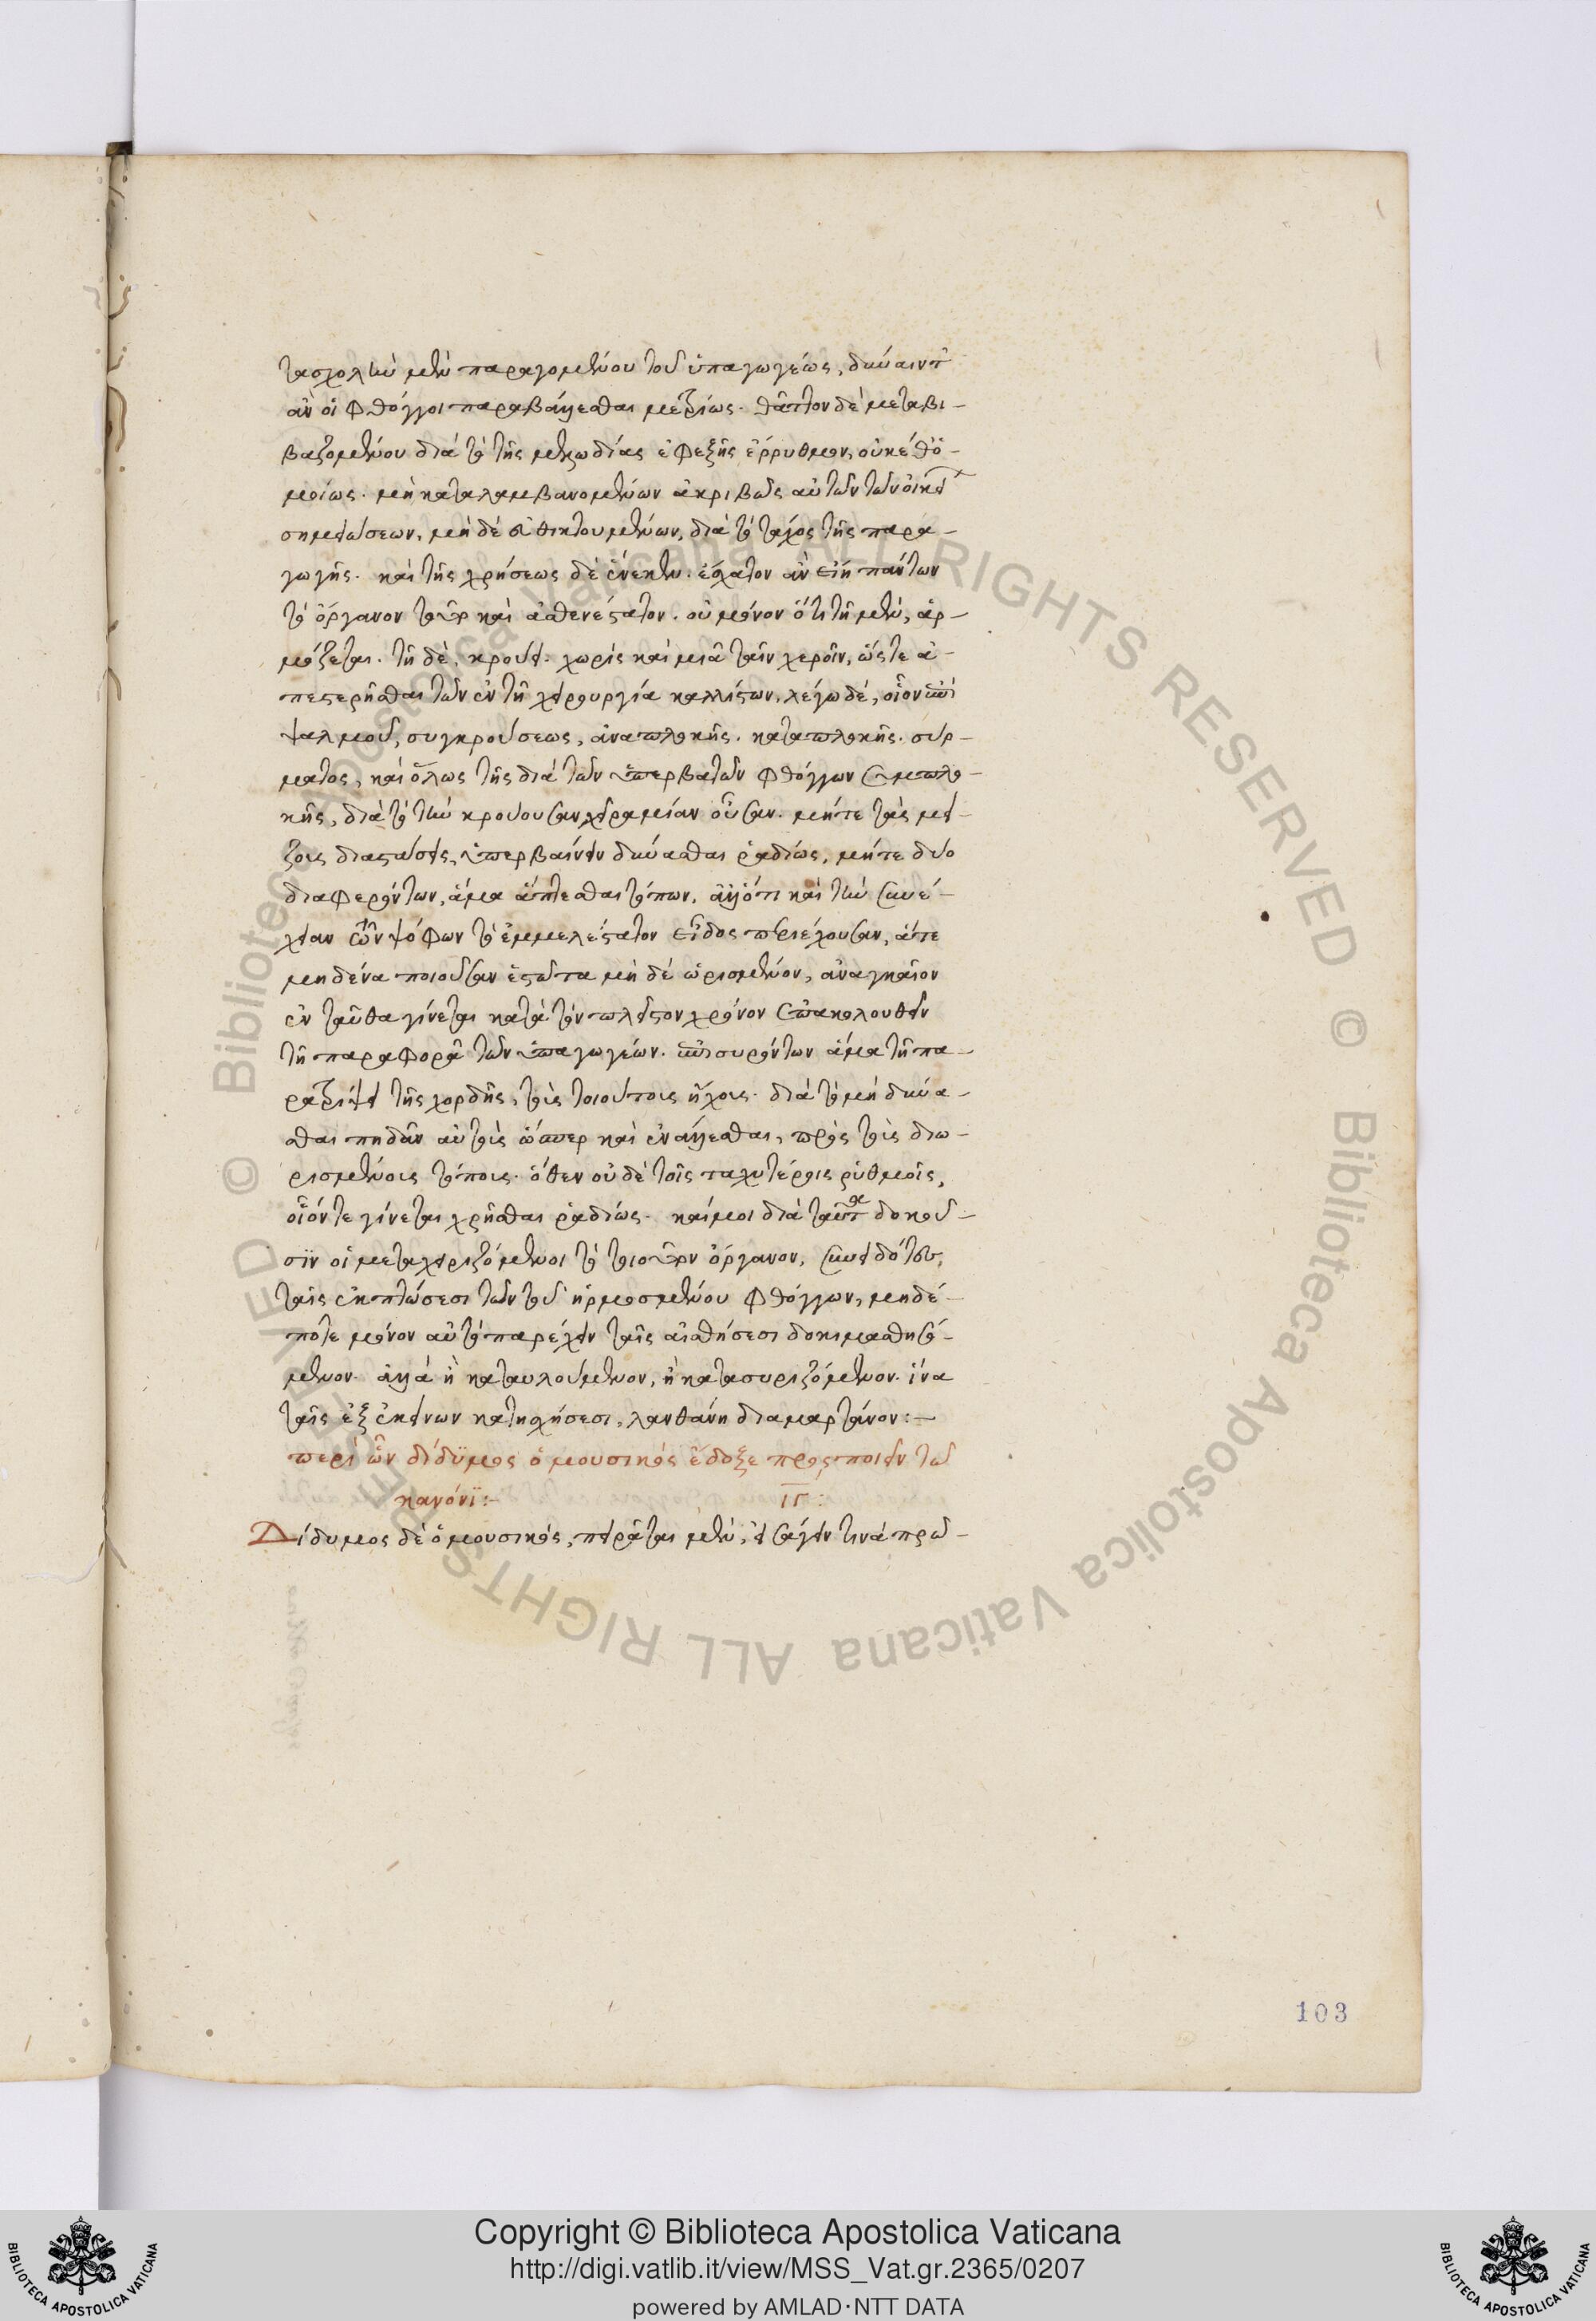 τασχολὴν μὲν παραγομένου τοῦ ὑπαγωγέως, δύναιντ
ἂν οἱ φθόγγοι παραβάλλεσθαι μετρίως. θᾶττον δὲ μεταβι-
βαζομένου διὰ τὸ τῆς μελῳδίας ἐφεξῆς ἔρρυθμον, οὐκέθ' ὁ-
μοίως. μὴ καταλαμβανομένων ἀκριβῶς αὐτῶν τῶν οἰκεί
σημειώσεων, μὴ δὲ εὐθικτουμένων, διὰ τὸ τάχος τῆς παρα-
γωγῆς. καὶ τῆς χρήσεως δὲ ἕνεκεν. ἔσχατον ἂν εἴη πάντων
τὸ ὄργανον τοῦτο καὶ ἀσθενέστατον. οὐ μόνον ὅτι τῇ μὲν, ἁρ-
μόζεται. τῇ δὲ, κρούει. χωρὶς καὶ μιᾷ ταῖν χεροῖν, ὥστε ἀ-
πεστερῆσθαι τῶν ἐν τῇ χειρουργίᾳ καλλίστων. λέγω δέ, οἷον ἐπι
ψαλμοῦ, συγκρούσεως, ἀναπλοκῆς. καταπλοκῆς. σύρ-
ματος, καὶ ὅλως τῆς διὰ τῶν ὑπερβατῶν φθόγγων συμπλο-
κῆς, διὰ τὸ τὴν κρούουσαν χεῖρα μίαν οὖσαν. μήτε τὰς μεί-
ζους διαστάσεις, ὑπερβαίνειν δύνασθαι ῥαδίως, μήτε δύο
διαφερόντων, ἅμα ἅπτεσθαι τόπων. ἀλλ' ὅτι καὶ τὴν συνέ-
χειαν τῶν ψόφων τὸ ἐμμελέστατον εἶδος περιέχουσαν, ἅτε
μηδένα ποιοῦσαν ἑστῶτα μὴ δὲ ὡρισμένον, ἀναγκαῖον
ἐνταῦθα γίνεται κατὰ τὸν πλεῖστον χρόνον ἐπακολουθεῖν
τῇ παραφορᾷ τῶν ὑπαγωγέων. ἐπισυρόντων ἅμα τῇ πα-
ρατρίψει τῆς χορδῆς, τοῖς τοιούτοις ἤχοις. διὰ τὸ μὴ δύνα-
σθαι πηδᾶν αὐτοῖς ὥσπερ καὶ ἐνάλλεσθαι, πρὸς τοῖς διω-
ρισμένοις τόποις. ὅθεν οὐδὲ τοῖς ταχυτέροις ῥυθμοῖς,
οἷόν τε γίνεται χρῆσθαι ῥαδίως. καί μοι διὰ ταῦτα δοκοῦ-
σϊν οἱ μεταχειριζόμενοι τὸ τοιοῦτον ὄργανον, συνειδότες,
ταῖς ἐκπτώσεσι τῶν τοῦ ἡρμοσμένου φθόγγων, μηδέ-
ποτε μόνον αὐτὸ παρέχειν ταῖς αἰσθήσεσι δοκιμασθησό-
μενον. ἀλλὰ ἢ καταυλούμενον, ἢ κατασυριζόμενον. ἵνα
ταῖς ἐξ ἐκείνων κατηχήσεσι, λανθάνῃ διαμαρτάνον:-
περὶ ὧν δίδϋμος ὁ μουσικὸς ἔδοξε προσποιεῖν τῷ
κανόνϊ:- ΙΓ:
Δίδυμος δὲ ὁ μουσικὸς, πειρᾶται μὲν, εἰσάγειν τινὰ πρῶ-
103
Copyright © Biblioteca Apostolica Vaticana
http://digi.vatlib.it/view/MSS_Vat.gr.2365/0207
powered by AMLAD·NTT DATA